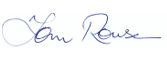 Tom Rouse